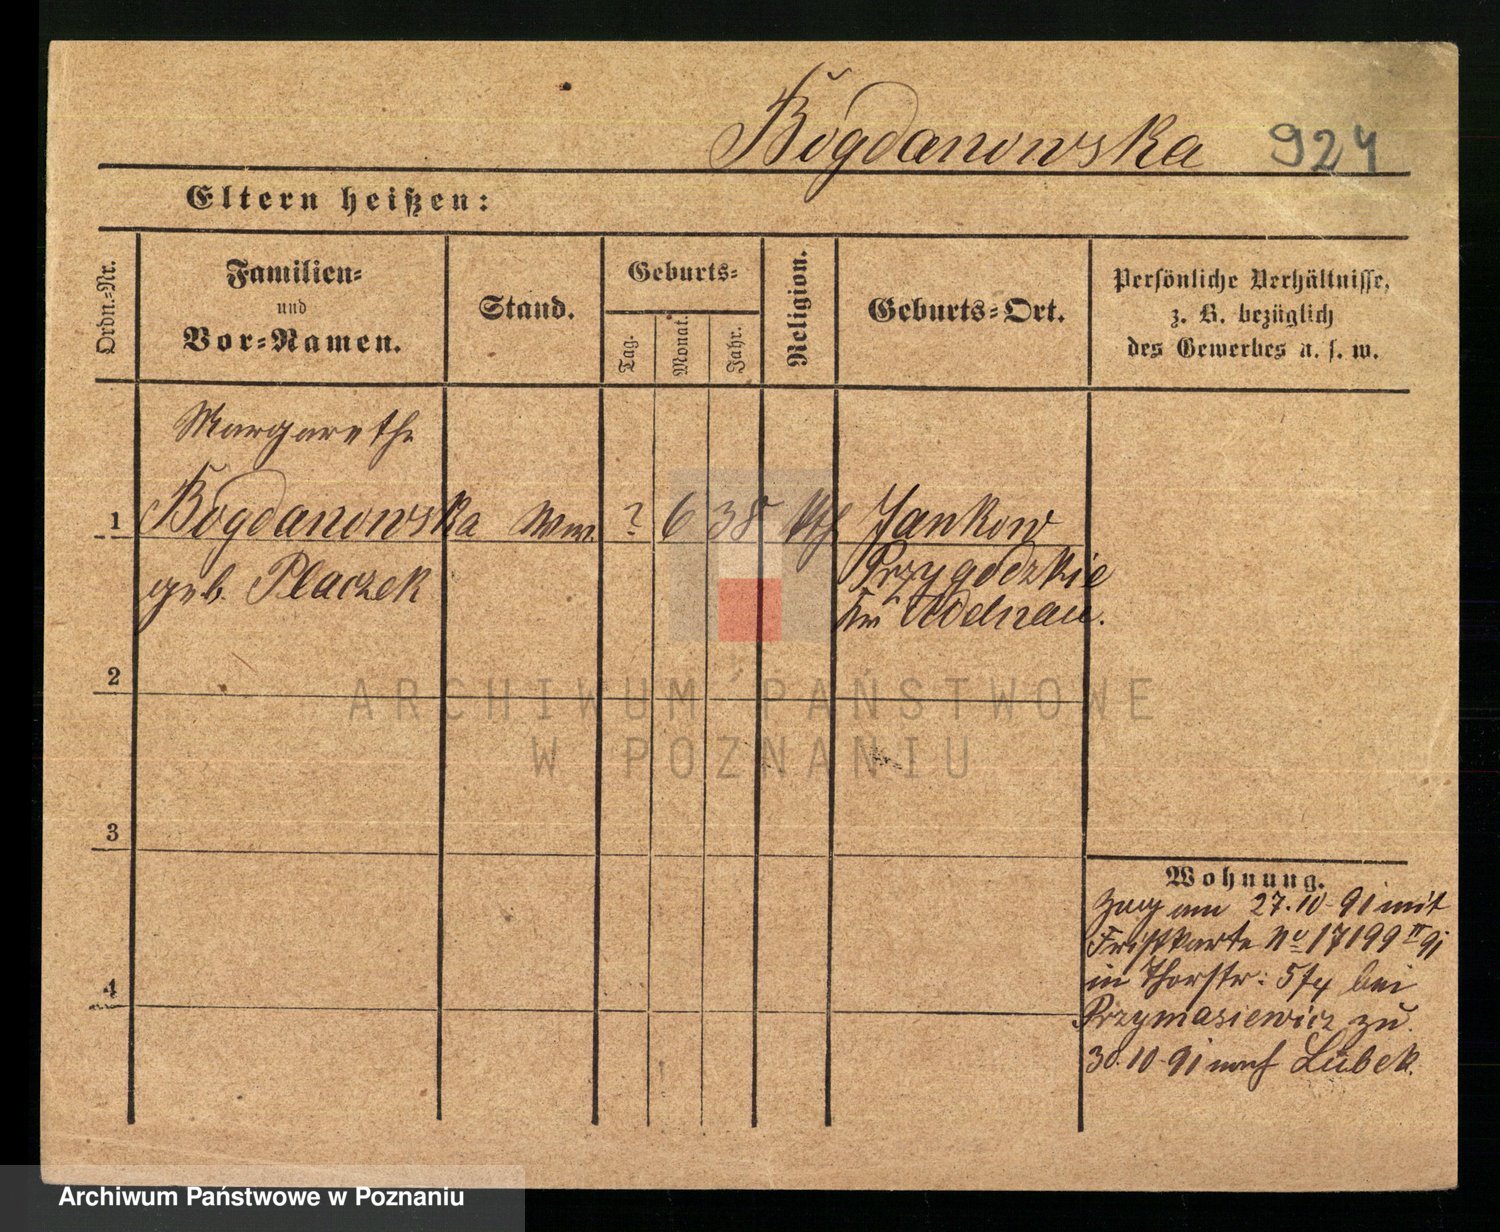 Bogdanowska 924
Eltern heißen:
Ordn.-Nr.
Familien-
und
Vor-Namen.
Stand.
Geburts-
Tag.
Monat.
Jahr.
Religion.
Geburts-Ort.
Persönliche Verhältnisse,
z. B. bezüglich
des Gewerbes u. s. w.
Margarethe
1 Bogdanowska Ww. ? 6 38 kth Jankow
geb. Placzek
Przygodzkie
Kr Adelnau.
2
ARCHIWUM PAŃSTWOWE
W POZNANIU
3
4
Wohnung.
Zog am 27.10.91 mit
Fristkarte No 17199 II 91
in Thorstr: 5/4 bei
Przymasiewicz zu.
30.10.91 nach Lübek.
Archiwum Państwowe w Poznaniu